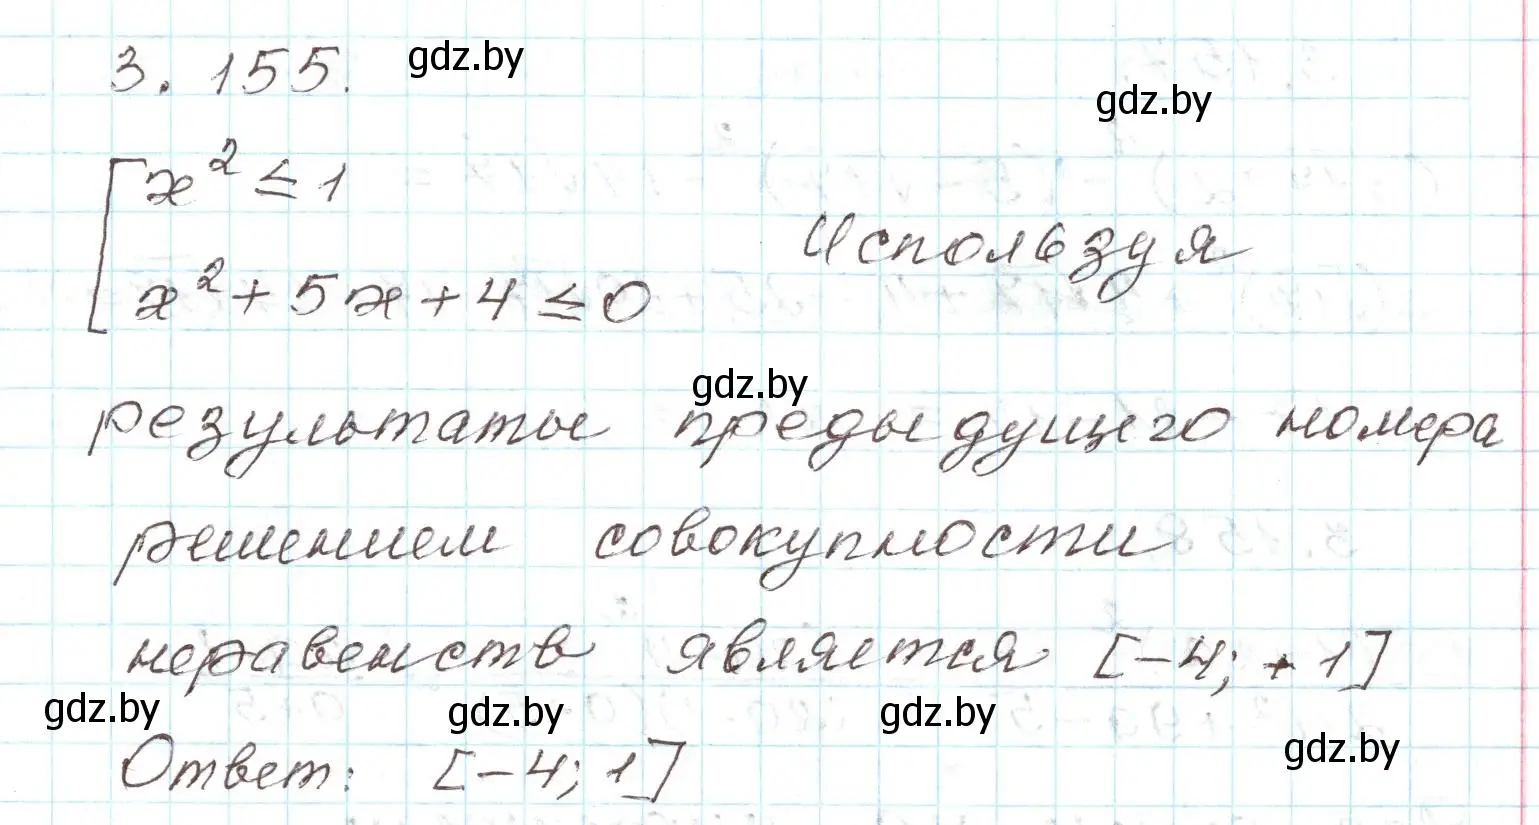 3.155.
gdz.by
gdz.by
x² ≤ 1
x² + 5x + 4 ≤ 0
Используя
gdz.by
результаты предыдущего номера
решением совокупности
неравенств является [-4; +1]
gdz.by
gdz.by
gdz.by
gdz.by
Ответ: [-4; 1]